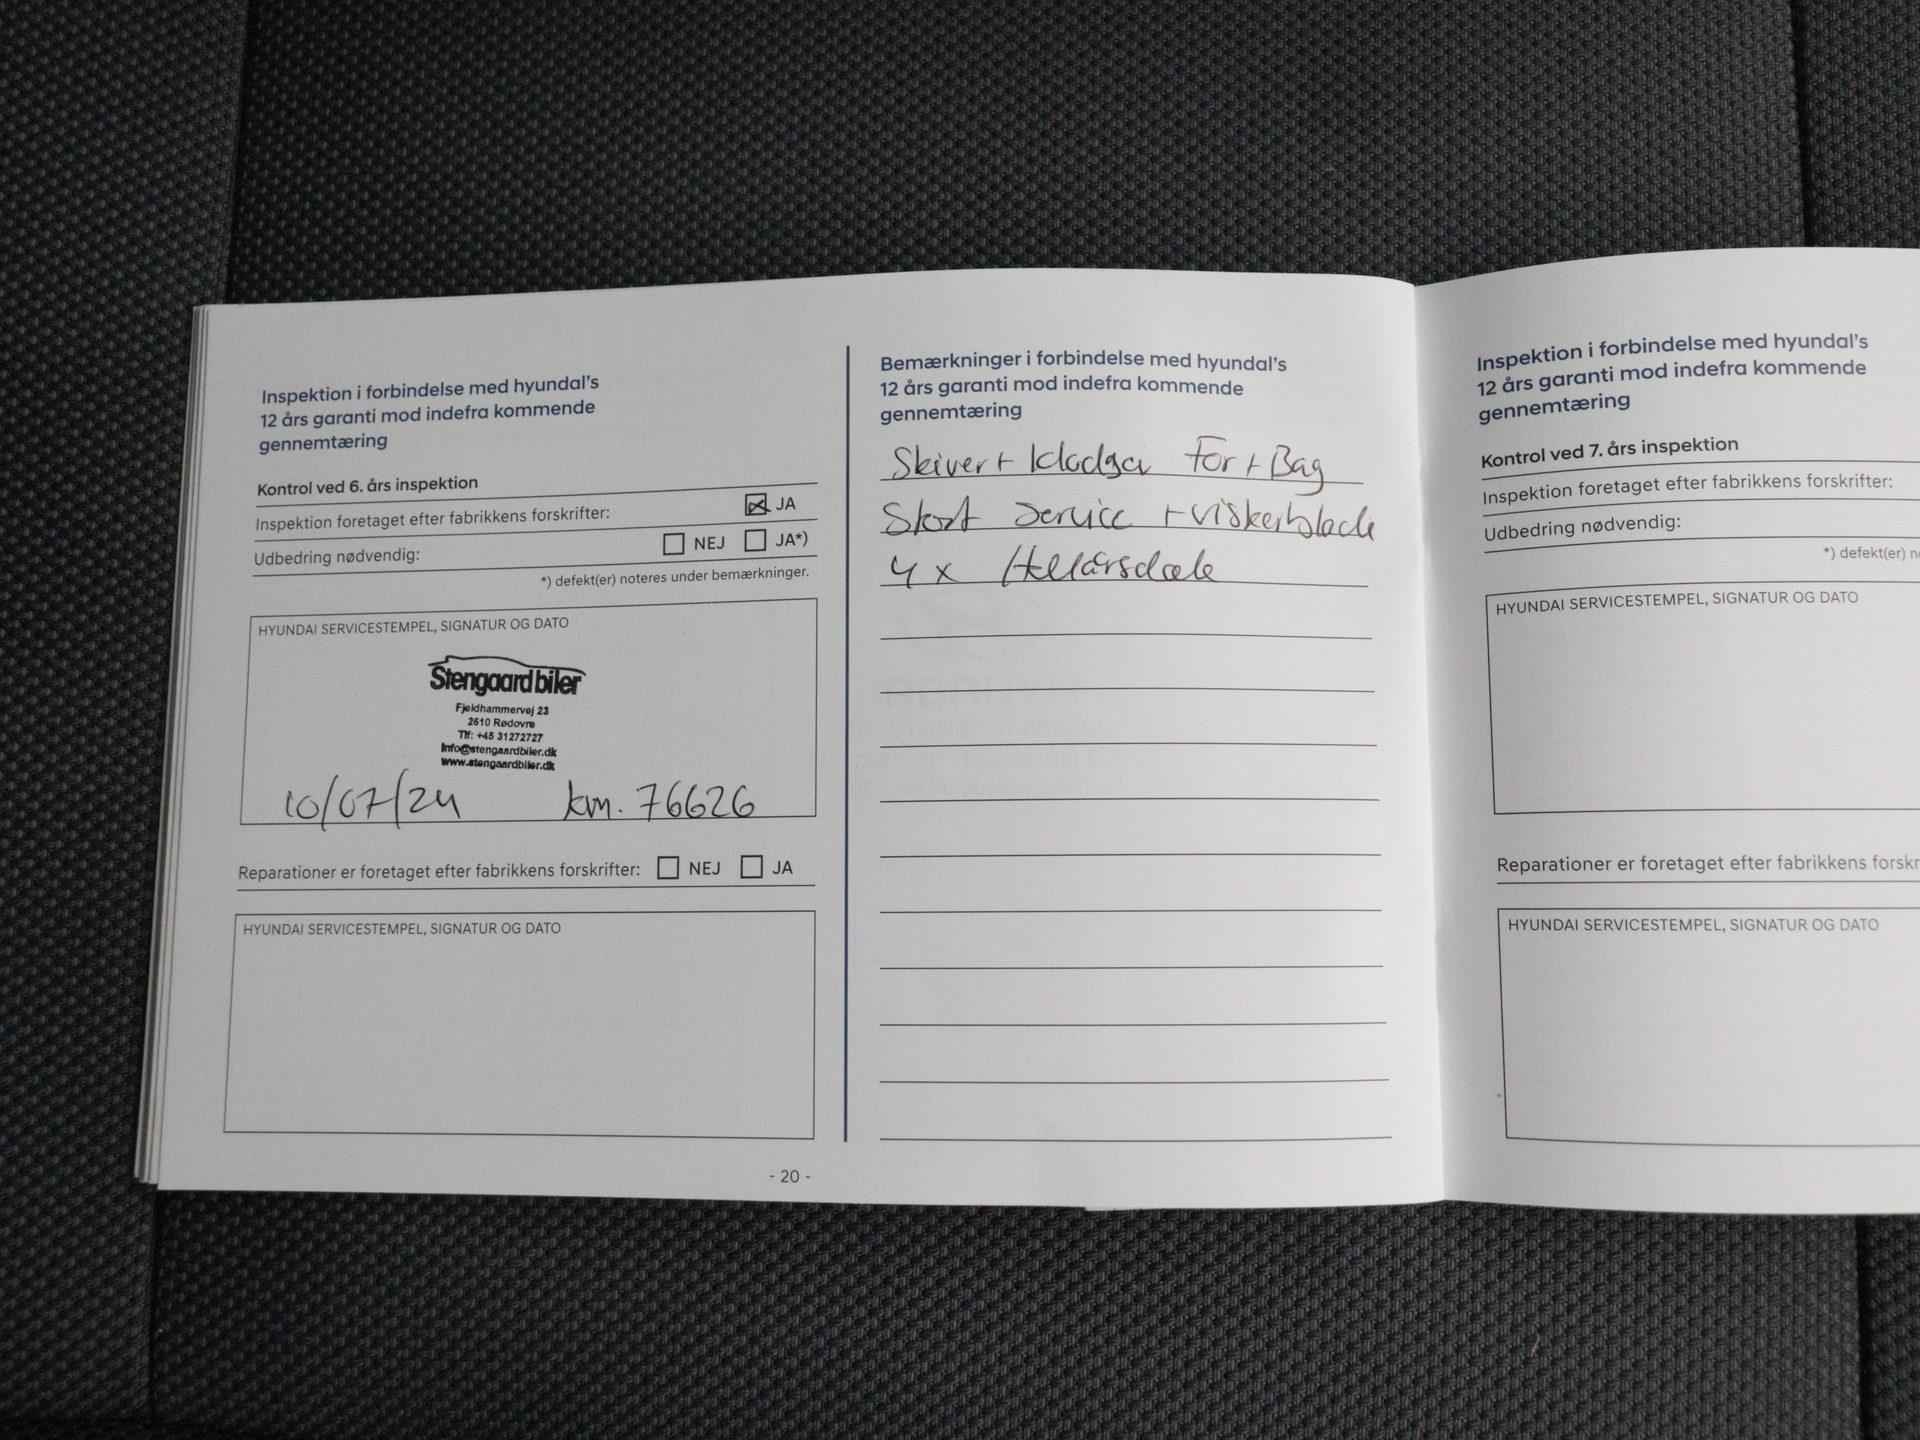 Inspektion i forbindelse med hyundai's
12 års garanti mod indefra kommende
gennemtæring
Kontrol ved 6. års inspektion
Inspektion foretaget efter fabrikkens forskrifter: JA
Udbedring nødvendig: NEJ JA*)
*) defekt(er) noteres under bemærkninger.
HYUNDAI SERVICESTEMPEL, SIGNATUR OG DATO
Stengaard biler
Fjeldhammervej 23
2610 Rødovre
Tlf: +45 31272727
Info@stengaardbiler.dk
www.stengaardbiler.dk
10/07/24 km. 76626
Reparationer er foretaget efter fabrikkens forskrifter: NEJ JA
HYUNDAI SERVICESTEMPEL, SIGNATUR OG DATO
- 20 -
Bemærkninger i forbindelse med hyundai's
12 års garanti mod indefra kommende
gennemtæring
Skiver + klodser For + Bag
Stort Service + viskerblade
4 x Helårsdæk
Inspektion i forbindelse med hyundai's
12 års garanti mod indefra kommende
gennemtæring
Kontrol ved 7. års inspektion
Inspektion foretaget efter fabrikkens forskrifter:
Udbedring nødvendig:
*) defekt(er)
HYUNDAI SERVICESTEMPEL, SIGNATUR OG DATO
Reparationer er foretaget efter fabrikkens forskr
HYUNDAI SERVICESTEMPEL, SIGNATUR OG DATO